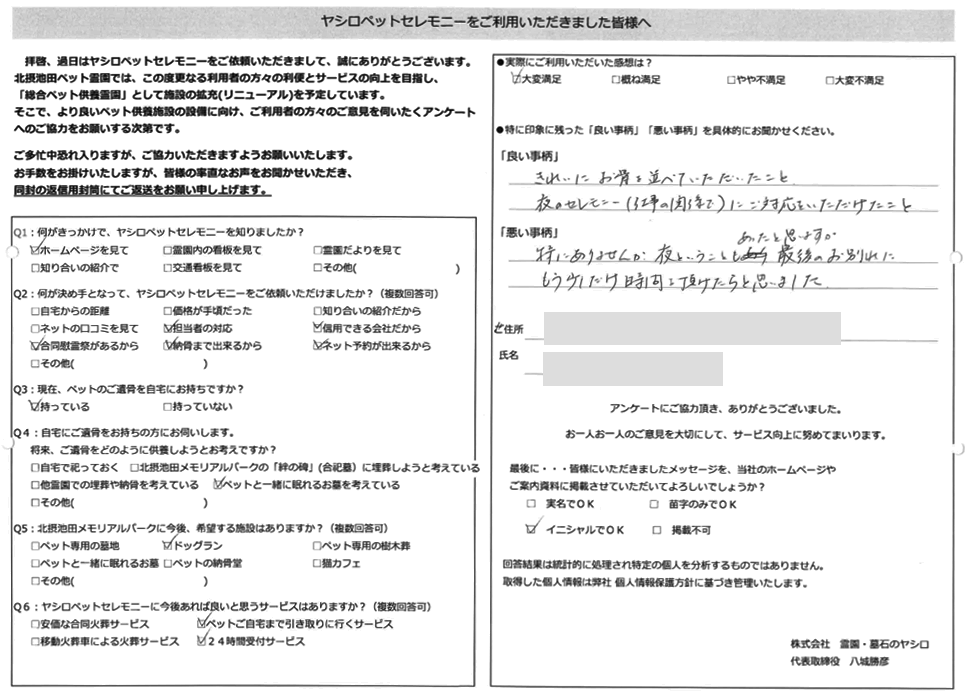 ヤシロペットセレモニーをご利用いただきました皆様へ
拝啓、過日はヤシロペットセレモニーをご依頼いただきまして、誠にありがとうございます。
北摂池田ペット霊園では、この度更なる利用者の方々の利便とサービスの向上を目指し、
「総合ペット供養霊園」として施設の拡充(リニューアル)を予定しています。
そこで、より良いペット供養施設の設備に向け、ご利用者の方々のご意見を伺いたくアンケート
へのご協力をお願いする次第です。
ご多忙中恐れ入りますが、ご協力いただきますようお願いいたします。
お手数をお掛けいたしますが、皆様の率直なお声をお聞かせいただき、
同封の返信用封筒にてご返送をお願い申し上げます。
Q1：何がきっかけで、ヤシロペットセレモニーを知りましたか？
☑ホームページを見て □霊園内の看板を見て □霊園だよりを見て
□知り合いの紹介で □交通看板を見て □その他( )
Q2：何が決め手となって、ヤシロペットセレモニーをご依頼いただけましたか？（複数回答可）
□自宅からの距離 □価格が手頃だった □知り合いの紹介だから
□ネットの口コミを見て ☑担当者の対応 ☑信用できる会社だから
☑合同慰霊祭があるから ☑納骨まで出来るから ☑ネット予約が出来るから
□その他( )
Q3：現在、ペットのご遺骨を自宅にお持ちですか？
☑持っている □持っていない
Q４：自宅にご遺骨をお持ちの方にお伺いします。
将来、ご遺骨をどのように供養しようとお考えですか？
□自宅で祀っておく □北摂池田メモリアルパークの「絆の碑」(合祀墓）に埋葬しようと考えている
□他霊園での埋葬や納骨を考えている ☑ペットと一緒に眠れるお墓を考えている
□その他( )
Q5：北摂池田メモリアルパークに今後、希望する施設はありますか？（複数回答可）
□ペット専用の墓地 ☑ドッグラン □ペット専用の樹木葬
□ペットと一緒に眠れるお墓 □ペットの納骨堂 □猫カフェ
□その他( )
Q６：ヤシロペットセレモニーに今後あれば良いと思うサービスはありますか？（複数回答可）
□安価な合同火葬サービス ☑ペットご自宅まで引き取りに行くサービス
□移動火葬車による火葬サービス ☑２４時間受付サービス
●実際にご利用いただいた感想は？
☑大変満足 □概ね満足 □やや不満足 □大変不満足
●特に印象に残った「良い事柄」「悪い事柄」を具体的にお聞かせください。
「良い事柄」
きれいに お骨を並べていただいたこと
夜のセレモニー(仕事の関係で)にご対応をいただけたこと
「悪い事柄」
あったと思いますが
特にありませんが 夜ということも 最後のお別れに
もう少しだけ時間を頂けたらと思いました
ご住所
氏名
アンケートにご協力頂き、ありがとうございました。
お一人お一人のご意見を大切にして、サービス向上に努めてまいります。
最後に・・・皆様にいただきましたメッセージを、当社のホームページや
ご案内資料に掲載させていただいてよろしいでしょうか？
□ 実名でＯＫ □ 苗字のみでＯＫ
☑ イニシャルでＯＫ □ 掲載不可
回答結果は統計的に処理され特定の個人を分析するものではありません。
取得した個人情報は弊社 個人情報保護方針に基づき管理いたします。
株式会社 霊園・墓石のヤシロ
代表取締役 八城勝彦